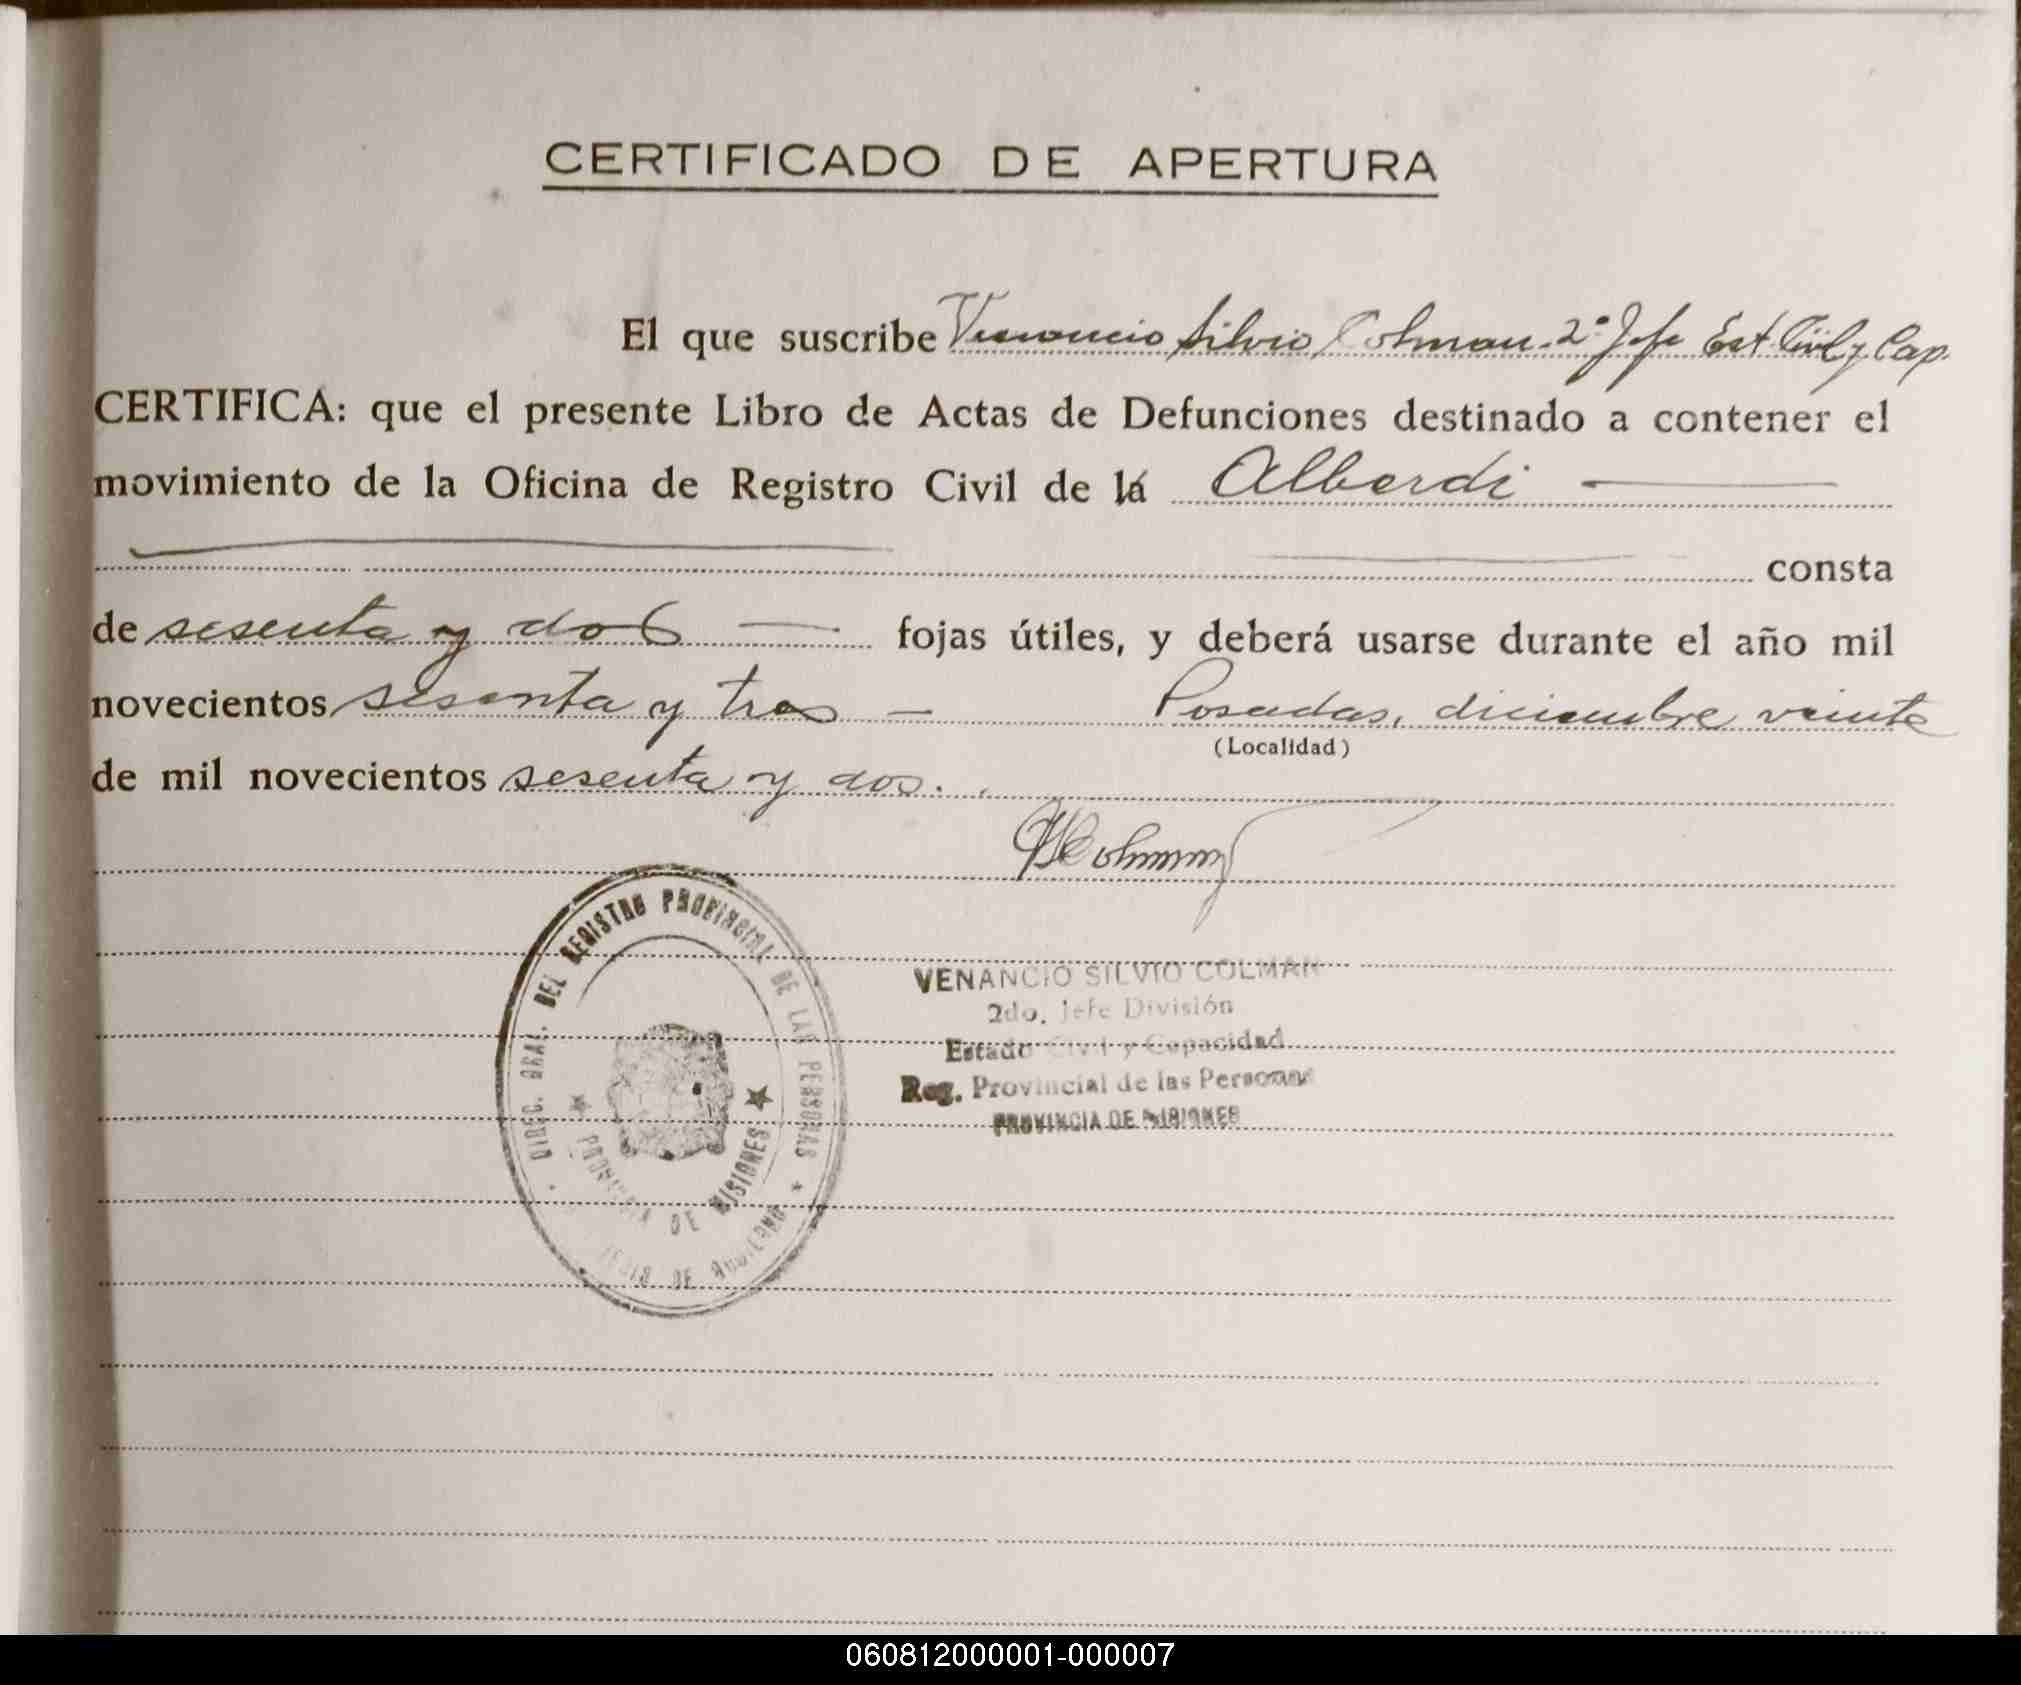 CERTIFICADO DE APERTURA
El que suscribe Venancio Silvio Colman 2º Jefe Est. Civil y Cap.
CERTIFICA: que el presente Libro de Actas de Defunciones destinado a contener el
movimiento de la Oficina de Registro Civil de la Alberdi
consta
de sesenta y dos fojas útiles, y deberá usarse durante el año mil
novecientos sesenta y tres Posadas, diciembre veinte
(Localidad)
de mil novecientos sesenta y dos.
VSColman
DIREC. GRAL. DEL REGISTRO PROVINCIAL DE LAS PERSONAS
PROVINCIA DE MISIONES
DE GOBIERNO
VENANCIO SILVIO COLMAN
2do. Jefe División
Estado Civil y Capacidad
Reg. Provincial de las Personas
PROVINCIA DE MISIONES
060812000001-000007